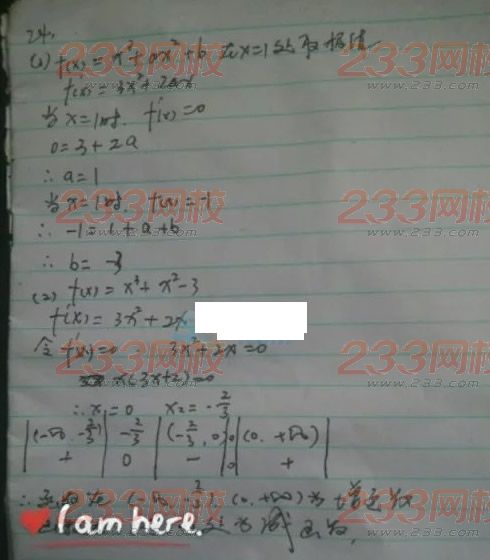 24.
(1) f(x) = x³+ax²+b 在x=1处取极值
f'(x) = 3x²+2ax
当x=1时. f'(x)=0
0=3+2a
∴ a=1
当x=1时. f(x)=-1
∴ -1=1+a+b
∴ b= -3
(2) f(x)= x³+x²-3
f'(x)= 3x²+2x
令f'(x)=0 3x²+2x=0
x(3x+2)=0
∴ x₁=0 x₂=-2/3
(-∞, -2/3) -2/3 (-2/3, 0) 0 (0, +∞)
+ 0 - 0 +
∴函数在(-∞, -2/3), (0, +∞)为增函数
为减函数,
I am here.
233网校
www.233.com
233网校
www.233.com
233网校
www.233.com
233网校
www.233.com
233网校
www.233.com
233网校
www.233.com